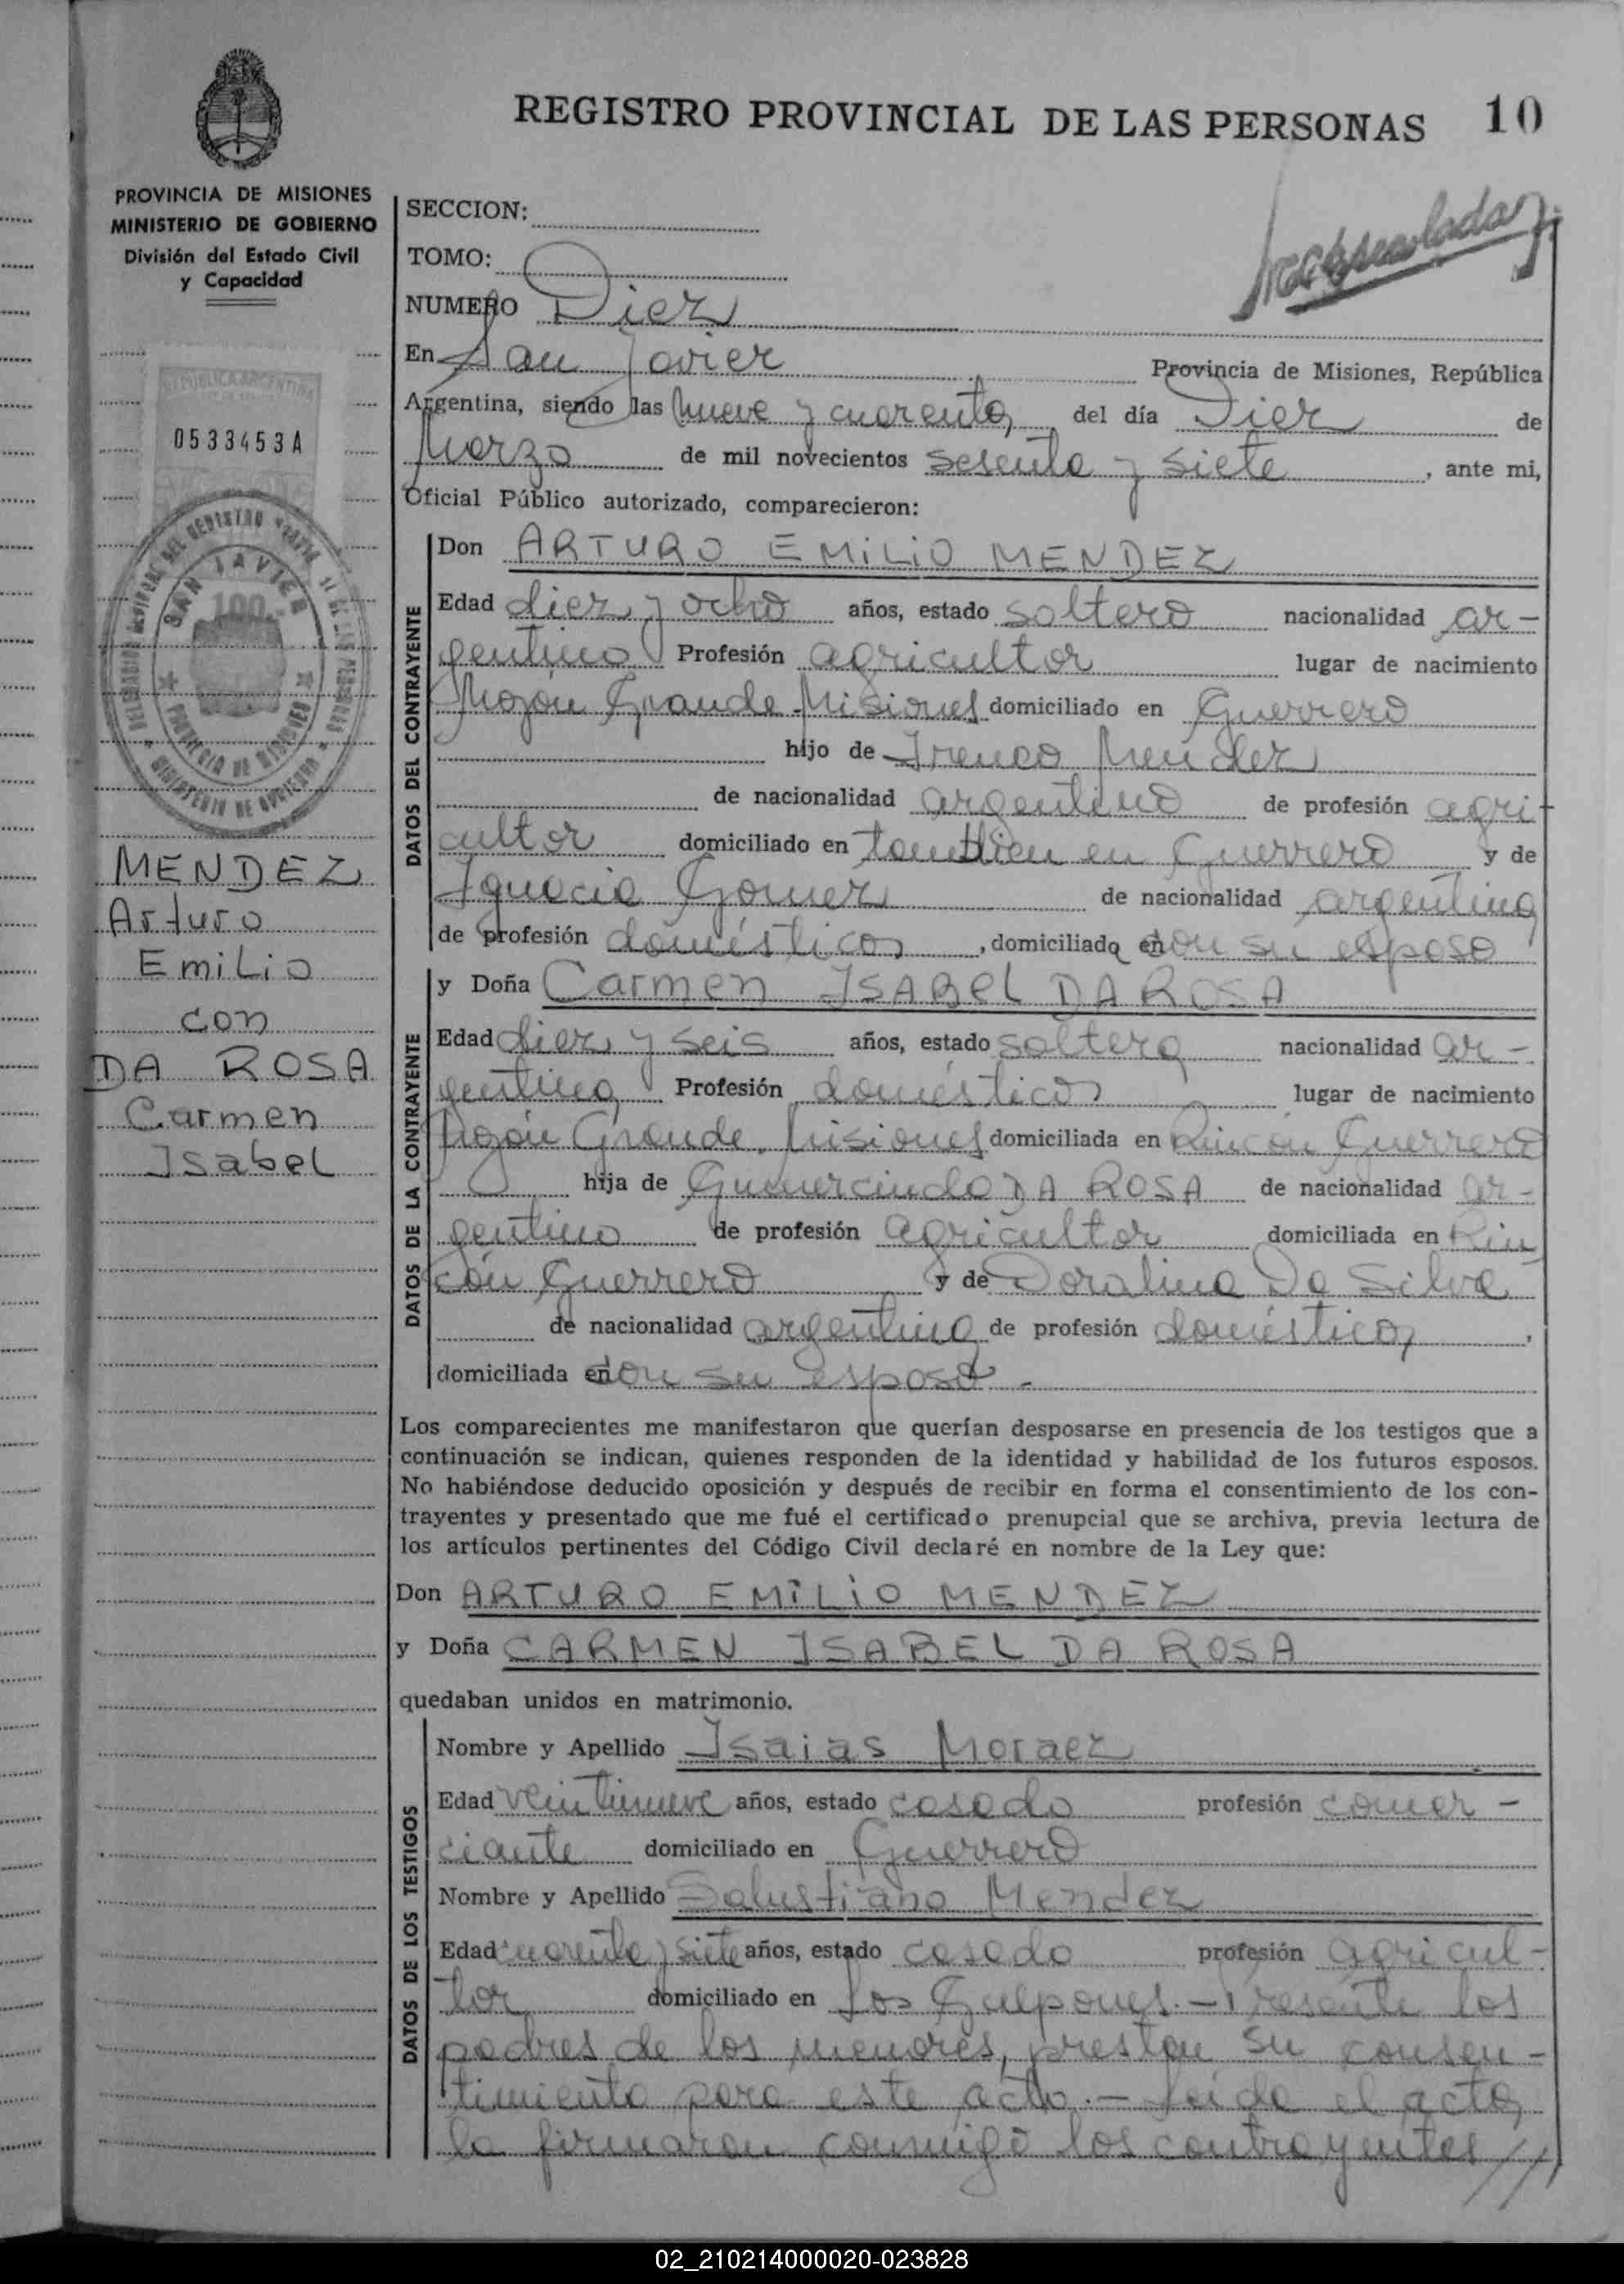 REGISTRO PROVINCIAL DE LAS PERSONAS 10
PROVINCIA DE MISIONES
MINISTERIO DE GOBIERNO
División del Estado Civil
y Capacidad
REPUBLICA ARGENTINA
0533453A
SAN JAVIER
100
PROVINCIA DE MISIONES
MINISTERIO DE GOBIERNO
MENDEZ
Arturo
Emilio
con
DA ROSA
Carmen
Isabel
SECCION:
TOMO:
NUMERO Diez
En San Javier Provincia de Misiones, República
Argentina, siendo las nueve y cuarenta, del día Diez de
Marzo de mil novecientos sesenta y siete, ante mi,
Oficial Público autorizado, comparecieron:
DATOS DEL CONTRAYENTE
Don ARTURO EMILIO MENDEZ
Edad diez y ocho años, estado soltero nacionalidad ar-
gentino Profesión agricultor lugar de nacimiento
Mojón Grande Misiones domiciliado en Guerrero
hijo de Ireneo Mendez
de nacionalidad argentino de profesión agri-
cultor domiciliado en también en Guerrero y de
Ignacia Gomez de nacionalidad argentina
de profesión doméstica, domiciliada en con su esposo
DATOS DE LA CONTRAYENTE
y Doña Carmen ISABEL DA ROSA
Edad diez y seis años, estado soltera nacionalidad ar-
gentina Profesión doméstica lugar de nacimiento
Mojón Grande, Misiones domiciliada en Rincón Guerrero
hija de Gumercindo DA ROSA de nacionalidad ar-
gentino de profesión agricultor domiciliada en Rin
cón Guerrero y de Doralina Da Silva
de nacionalidad argentina de profesión doméstica,
domiciliada en con su esposo -
Los comparecientes me manifestaron que querían desposarse en presencia de los testigos que a
continuación se indican, quienes responden de la identidad y habilidad de los futuros esposos.
No habiéndose deducido oposición y después de recibir en forma el consentimiento de los con-
trayentes y presentado que me fué el certificado prenupcial que se archiva, previa lectura de
los artículos pertinentes del Código Civil declaré en nombre de la Ley que:
Don ARTURO EMILIO MENDEZ
y Doña CARMEN ISABEL DA ROSA
quedaban unidos en matrimonio.
DATOS DE LOS TESTIGOS
Nombre y Apellido Isaias Moraez
Edad veintinueve años, estado casado profesión comer-
ciante domiciliado en Guerrero
Nombre y Apellido Salustiano Mendez
Edad cuarenta y siete años, estado casado profesión agricul-
tor domiciliado en Los Galpones.- Presente los
padres de los menores, prestan su consen-
timiento para este acto.- Leída el acta,
la firmaron conmigo los contrayentes //
02_210214000020-023828